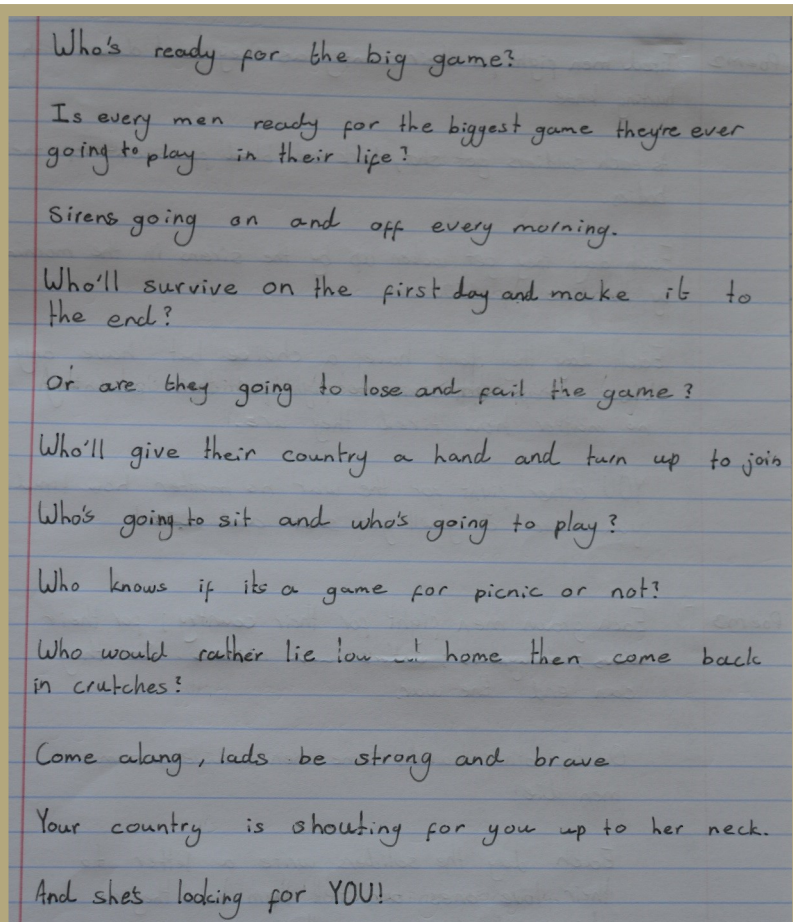 Who's ready for the big game?
Is every men ready for the biggest game they're ever
going to play in their life?
Sirens going on and off every morning.
Who'll survive on the first day and make it to
the end?
Or are they going to lose and fail the game?
Who'll give their country a hand and turn up to join
Who's going to sit and who's going to play?
Who knows if its a game for picnic or not?
Who would rather lie low home then come back
in crutches?
Come alang, lads be strong and brave
Your country is shouting for you up to her neck.
And she's looking for YOU!